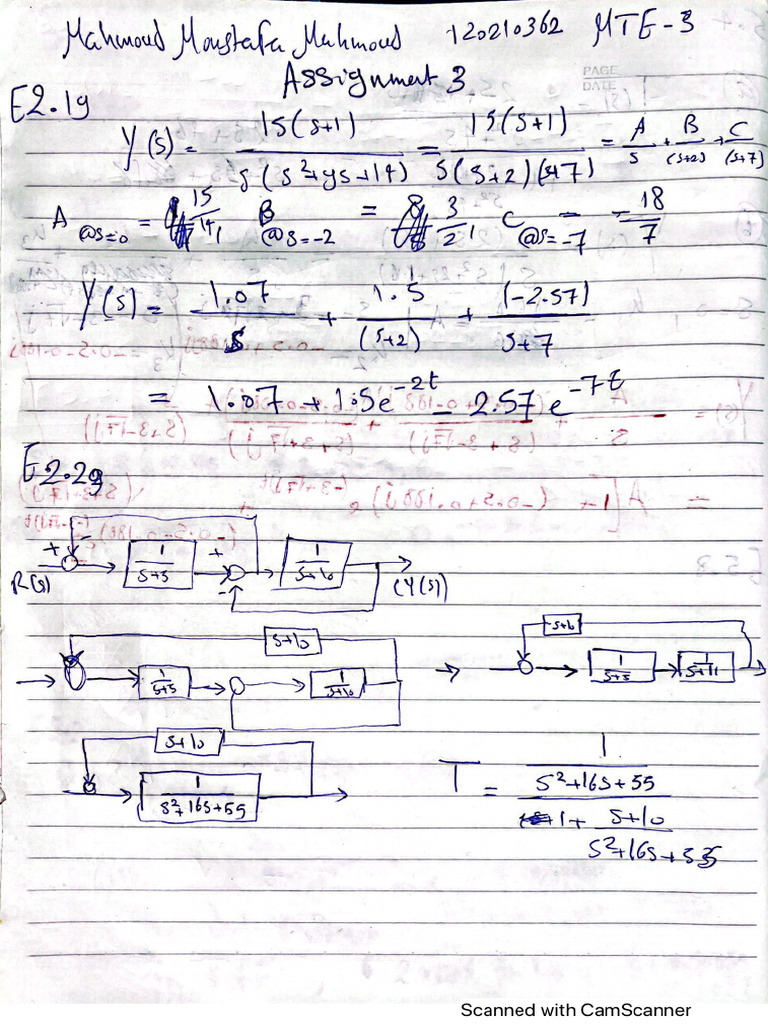 Mahmoud Moustafa Mahmoud 120210362 MTE-3
Assignment 3
PAGE
DATE
E2.19
Y(s) = 15(s+1) / s(s²+9s+14) = 15(s+1) / s(s+2)(s+7) = A/s + B/(s+2) + C/(s+7)
A @s=0 = 15/14, B @s=-2 = 3/2, C @s=-7 = -18/7
Y(s) = 1.07/s + 1.5/(s+2) + (-2.57)/s+7
= 1.07 + 1.5e^-2t - 2.57 e^-7t
E2.29
+ - + 1/s+5 1/s+10
R(s) - (Y(s)
s+10 s+10
1/s+5 1/s+10 1/s+5 1/s+11
s+10
1/s²+16s+55
T = 1/s²+16s+55 / 1 + s+10/s²+16s+55
Scanned with CamScanner